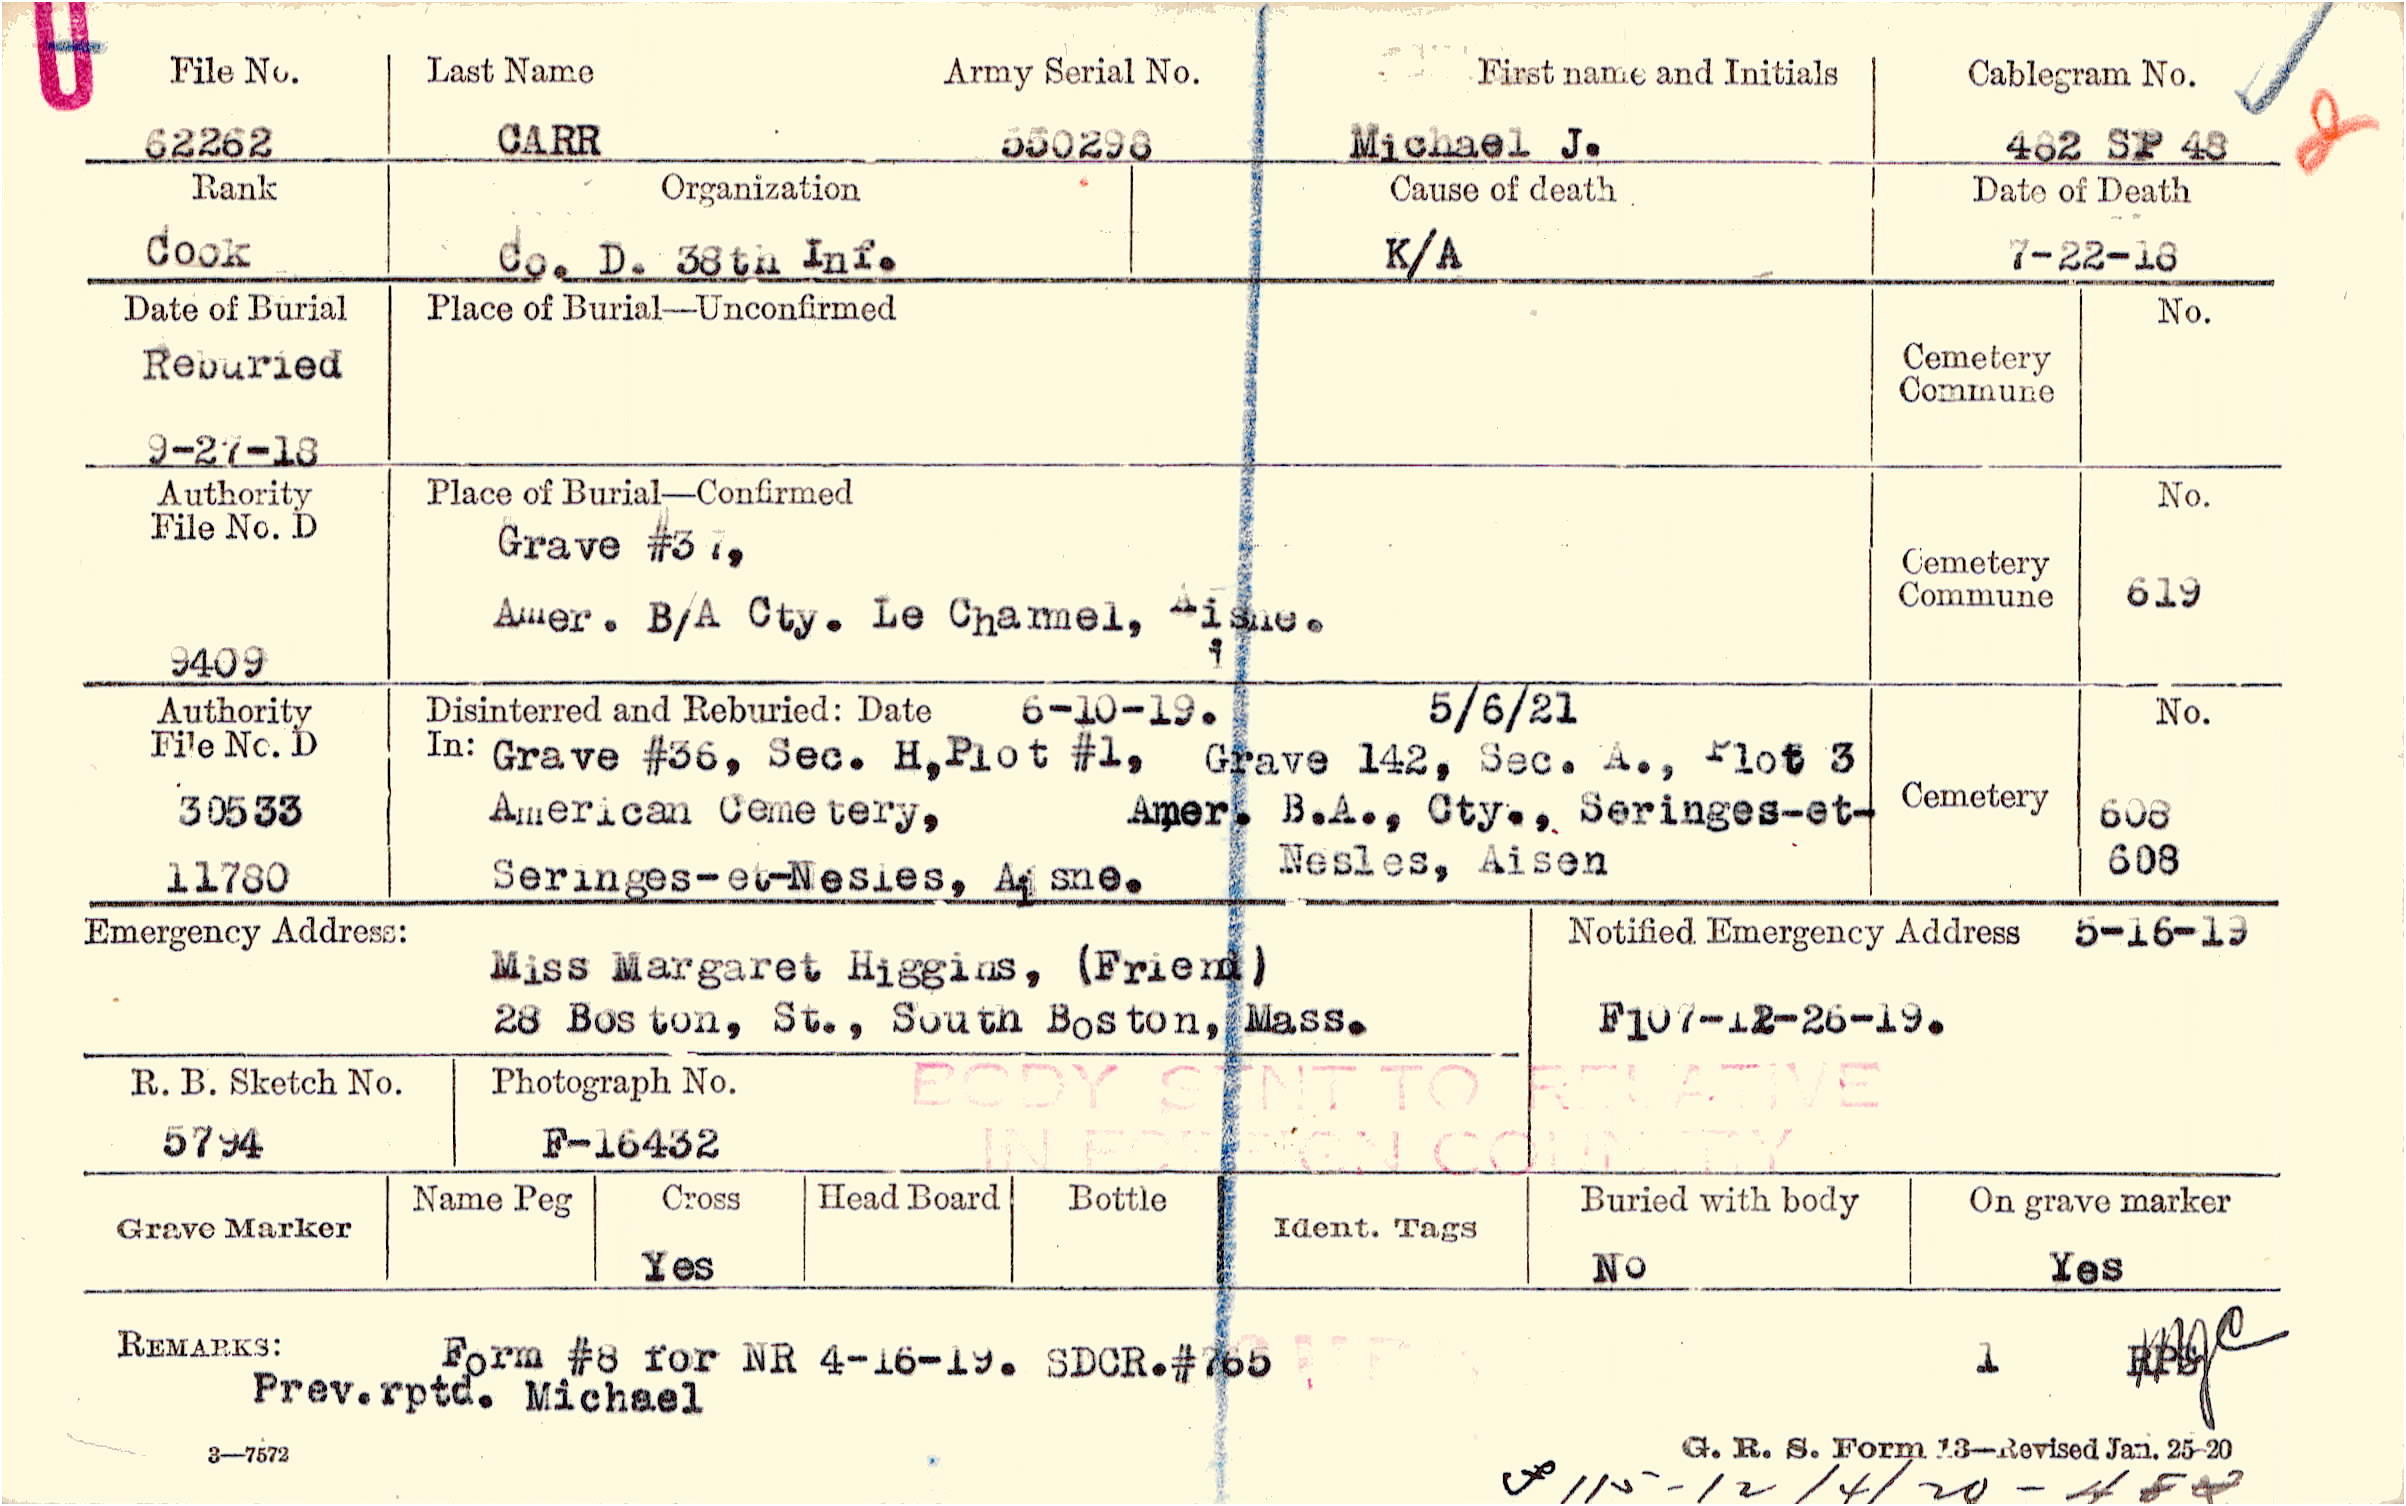 File No. Last Name Army Serial No. First name and Initials Cablegram No.
62262 CARR 550298 Michael J. 482 SP 48
Rank Organization Cause of death Date of Death
Cook Co. D. 38th Inf. K/A 7-22-18
Date of Burial Place of Burial—Unconfirmed No.
Reburied Cemetery
Commune
9-27-18
Authority Place of Burial—Confirmed No.
File No. D Grave #37,
Cemetery
Amer. B/A Cty. Le Charmel, Aisne. Commune 619
9409
Authority Disinterred and Reburied: Date 6-10-19. 5/6/21 No.
File No. D In: Grave #36, Sec. H,Plot #1, Grave 142, Sec. A., Plot 3
30533 American Cemetery, Amer. B.A., Cty., Seringes-et- Cemetery 608
11780 Seringes-et-Nesles, Aisne. Nesles, Aisen 608
Emergency Address: Notified Emergency Address 5-16-19
Miss Margaret Higgins, (Friend)
28 Boston, St., South Boston, Mass. F107-12-26-19.
R. B. Sketch No. Photograph No. BODY SENT TO RELATIVE
5794 F-16432 IN FOREIGN COUNTRY
Grave Marker Name Peg Cross Head Board Bottle Ident. Tags Buried with body On grave marker
Yes No Yes
REMARKS: Form #8 for NR 4-16-19. SDCR.#765 1
Prev.rptd. Michael
3—7572 G. R. S. Form 13—Revised Jan. 25-20
115-12/4/20-